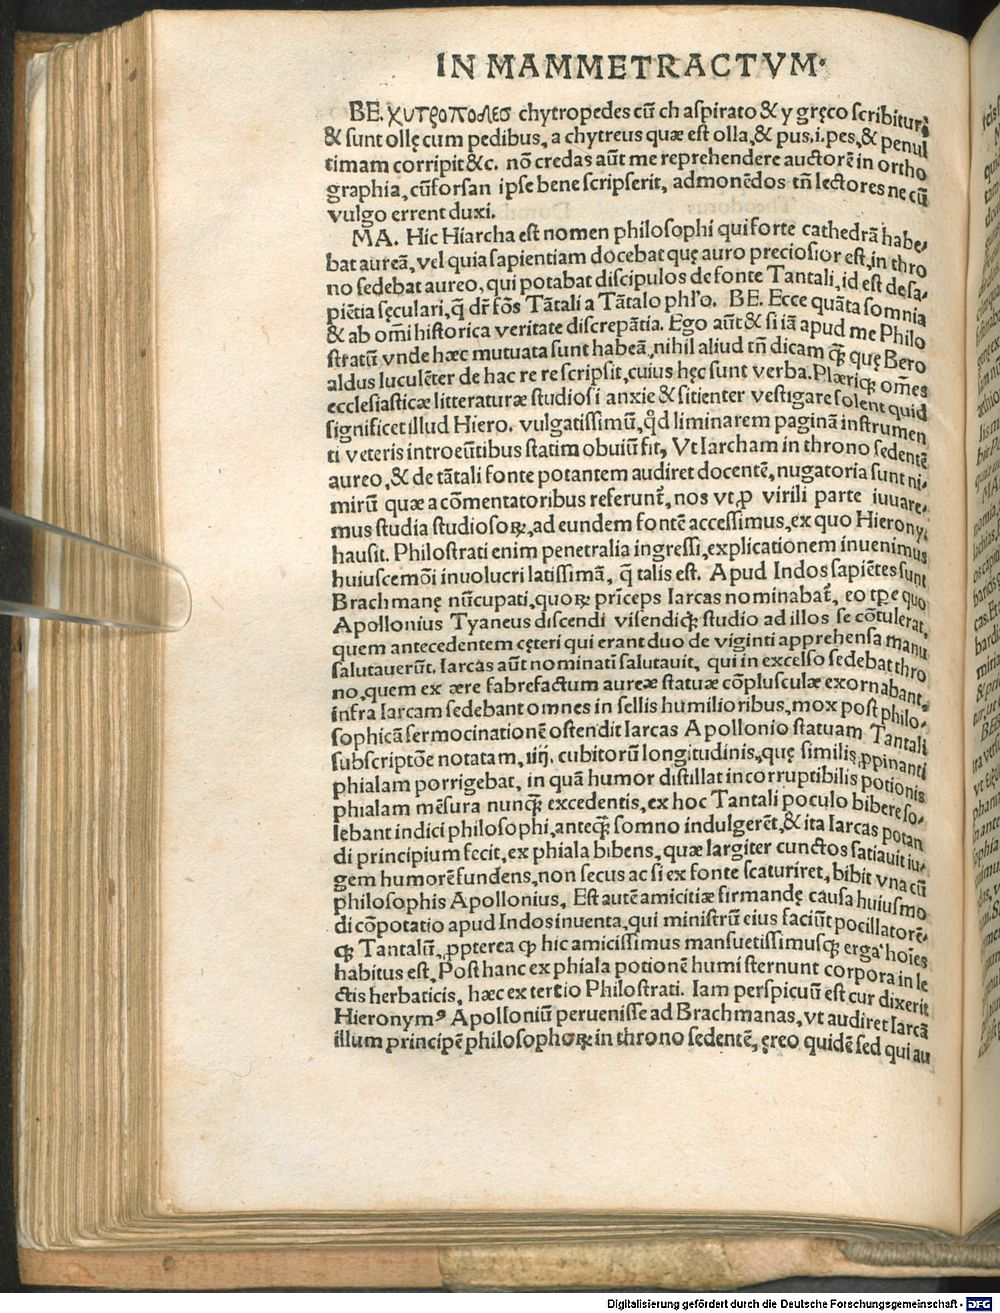 IN MAMMETRACTVM·
BE. χυτροπολεσ chytropedes cū ch aspirato & y gręco scribitur:
& sunt ollę cum pedibus, a chytreus quæ est olla, & pus.i. pes, & penul
timam corripit &c. nō credas aūt me reprehendere auctorē in ortho
graphia, cū forsan ipse bene scripserit, admonēdos tn̄ lectores ne cū
vulgo errent duxi.
MA. Hic Hiarcha est nomen philosophi qui forte cathedrā habe/
bat aureā, vel quia sapientiam docebat quę auro preciosior est, in thro
no sedebat aureo, qui potabat discipulos de fonte Tantali, id est de sa/
piētia sęculari, q̄ dr̄ fōs Tātali a Tātalo phl'o. BE. Ecce quāta somnia
& ab om̄i historica veritate discrepātia. Ego aūt & si iā apud me Philo
stratū vnde hæc mutuata sunt habeā, nihil aliud tn̄ dicam ꝙ̄ quę Bero
aldus luculēter de hac re rescripsit, cuius hęc sunt verba. Plæriqꝫ om̄es
ecclesiasticæ litteraturæ studiosi anxie & sitienter vestigare solent quid
significet illud Hiero. vulgatissimū, qd̓ liminarem paginā instrumen
ti veteris introeūtibus statim obuiū fit, Vt Iarcham in throno sedentē
aureo, & de tātali fonte potantem audiret docentē, nugatoria sunt ni/
mirū quæ a cōmentatoribus referunt̃, nos vt ꝓ virili parte iuuare/
mus studia studiosoꝝ, ad eundem fontē accessimus, ex quo Hierony.
hausit. Philostrati enim penetralia ingressi, explicationem inuenimus
huiuscemōi inuolucri latissimā, q̄ talis est. Apud Indos sapiētes sunt
Brachmanę nūcupati, quoꝝ prīceps Iarcas nominabat̃, eo tꝑe quo
Apollonius Tyaneus discendi visendiqꝫ studio ad illos se cōtulerat,
quem antecedentem cęteri qui erant duo de viginti apprehensa manu
salutauerūt. Iarcas aūt nominati salutauit, qui in excelso sedebat thro
no, quem ex ære fabrefactum aureæ statuæ cōplusculæ exornabant,
infra Iarcam sedebant omnes in sellis humilioribus, mox post philo/
sophicā sermocinationē ostendit Iarcas Apollonio statuam Tantali
subscriptōe notatam, iiij. cubitorū longitudinis, quę similis ꝓpinanti
phialam porrigebat, in quā humor distillat incorruptibilis potionis
phialam mēsura nunqꝫ̄ excedentis, ex hoc Tantali poculo bibere so/
lebant indici philosophi, anteqꝫ̄ somno indulgerēt, & ita Iarcas potan
di principium fecit, ex phiala bibens, quæ largiter cunctos satiauit iu/
gem humorē fundens, non secus ac si ex fonte scaturiret, bibit vna cū
philosophis Apollonius. Est autē amicitiæ firmandę causa huiusmo
di cōpotatio apud Indos inuenta, qui ministrū eius faciūt pocillatorē/
qꝫ Tantalū, ꝓpterea ꝙ hic amicissimus mansuetissimusqꝫ erga hoīes
habitus est. Post hanc ex phiala potionē humi sternunt corpora in le
ctis herbaticis, hæc ex tertio Philostrati. Iam perspicuū est cur dixerit
Hieronymꝰ Apolloniū peruenisse ad Brachmanas, vt audiret Iarcā
illum principē philosophoꝝ in throno sedentē, ęreo quidē sed qui au
Digitalisierung gefördert durch die Deutsche Forschungsgemeinschaft - DFG